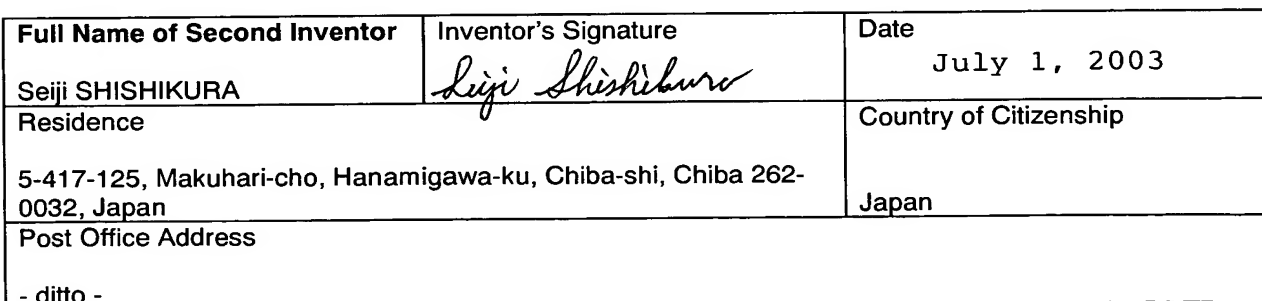 Full Name of Second Inventor
Seiji SHISHIKURA
Inventor's Signature
Seiji Shishikura
Date
July 1, 2003
Residence
5-417-125, Makuhari-cho, Hanamigawa-ku, Chiba-shi, Chiba 262-
0032, Japan
Country of Citizenship
Japan
Post Office Address
- ditto -